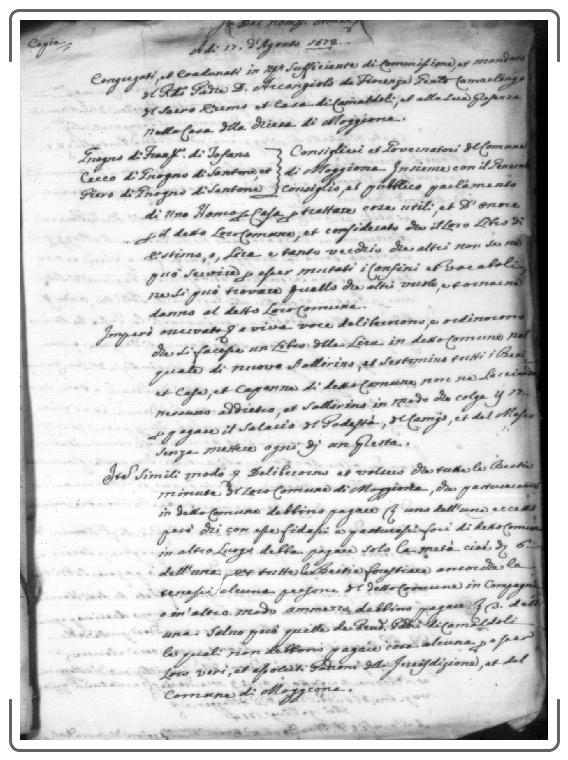 Copia
Adi 17. d'Agosto 1672.
Congregati, et Coadunati in n.ro sufficiente di Commissione, et mandato
del R.do Padre D. Arcangiolo da Fiorenza Camarlengo
del Sacro Eremo et Casa di Camaldoli, et alla sua presenza
nella Casa della Chiesa di Moggiona.
di Tofano Consiglieri et Governatori del Comune
Cecco di Fnogno di Santone et di Moggiona Insieme con il General
Piero di Fnogno di Santone Consiglio, et publico parlamento
di uno Homo p Casa p trattare cose utili, et d'onore
p il detto Loro Comune, et considerato che il Loro Libro di
Estimo, o, Lira e tanto vecchio che altri non se ne
può servire p esser mutati i Confini et vocaboli,
ne si può trovare quello che altri vuole, et tornare
danno al detto Loro Comune.
Imperò a viva voce deliberorno, e ordinorno
che si facesse un Libro della Lira in detto Comune nel
quale di nuovo s'allirino, et s'estimino tutti i Beni
et Case, et Capanne di detto Comune non ne lasciando
nessuno addietro, et s'allirino in modo che
p pagare il Salario del Podestà, del et del Messo
senza mettere ogni dì
Ite Simili modo Deliberorno et volsero che tutte le Bestie
minute del Loro Comune di Moggiona, che
in detto Comune debbino pagare uno dell'una eccetto
però chi con esse fidassi o pasturassi fori di detto Comune
in altro Luogo debba pagare solo la metà cioè 6
dell'una, et tutte le Bestie forestiere ancorche le
tenessi alcuna persona del detto Comune in Compagnia
o in altro modo ammezzo debbino pagare 3. dell'
una: Salvo però quelle de Rend. Padri di Camaldoli
le quali non debbono pagare cosa alcuna p esser
Loro veri, et assoluti Padroni della Iurisdizione, et del
Comune di Moggiona.